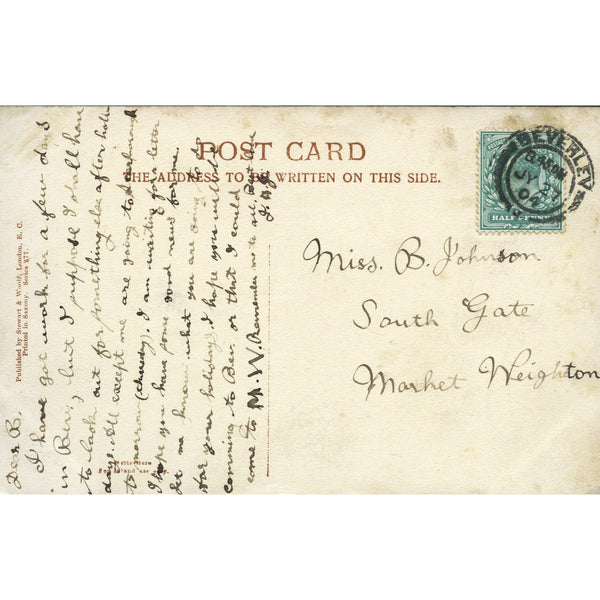 POST CARD
THE ADDRESS TO BE WRITTEN ON THIS SIDE.
BEVERLEY
JY
04
HALFPENNY
Miss. B. Johnson
South Gate
Market Weighton
Published by Stewart & Woolf, London, E. C.
Printed in Saxony. Series 277.
Dear B.
I have got work for a few days
in Bev., but I suppose I shall have
to look out for something else after holi
days. All except me are going to Scarborough
to morrow (Thursday). I am waiting for a letter
I hope you have some good news for me.
let me know what you are going to do
for your holidays. I hope you will be
comming to Bev. or that I could
come to M. W. Remember me to all. Best love